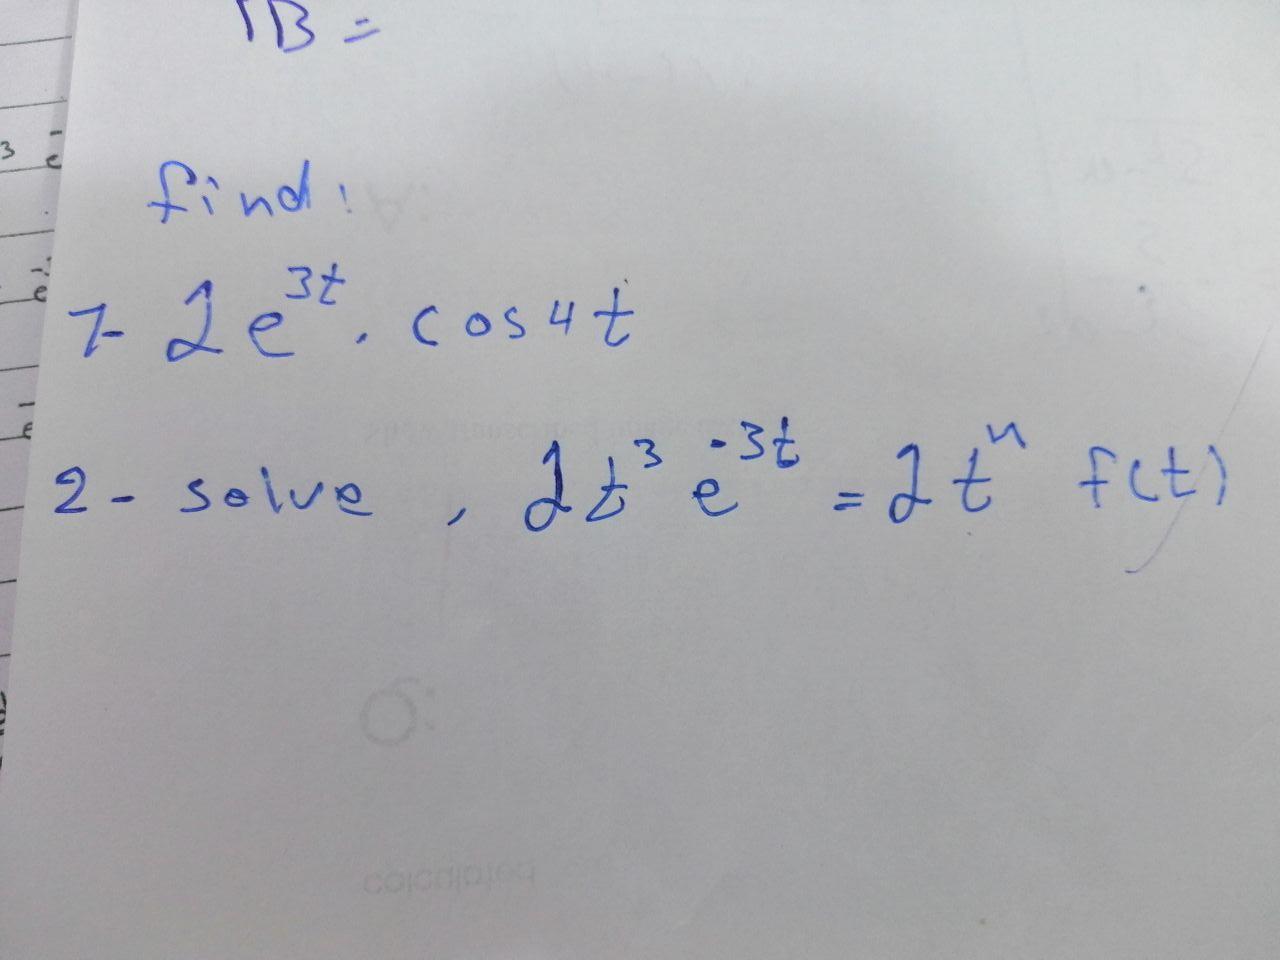 IB =
find:
1- ℒ e^3t . cos 4t
2- solve , ℒ t^3 e^-3t = ℒ t^n f(t)